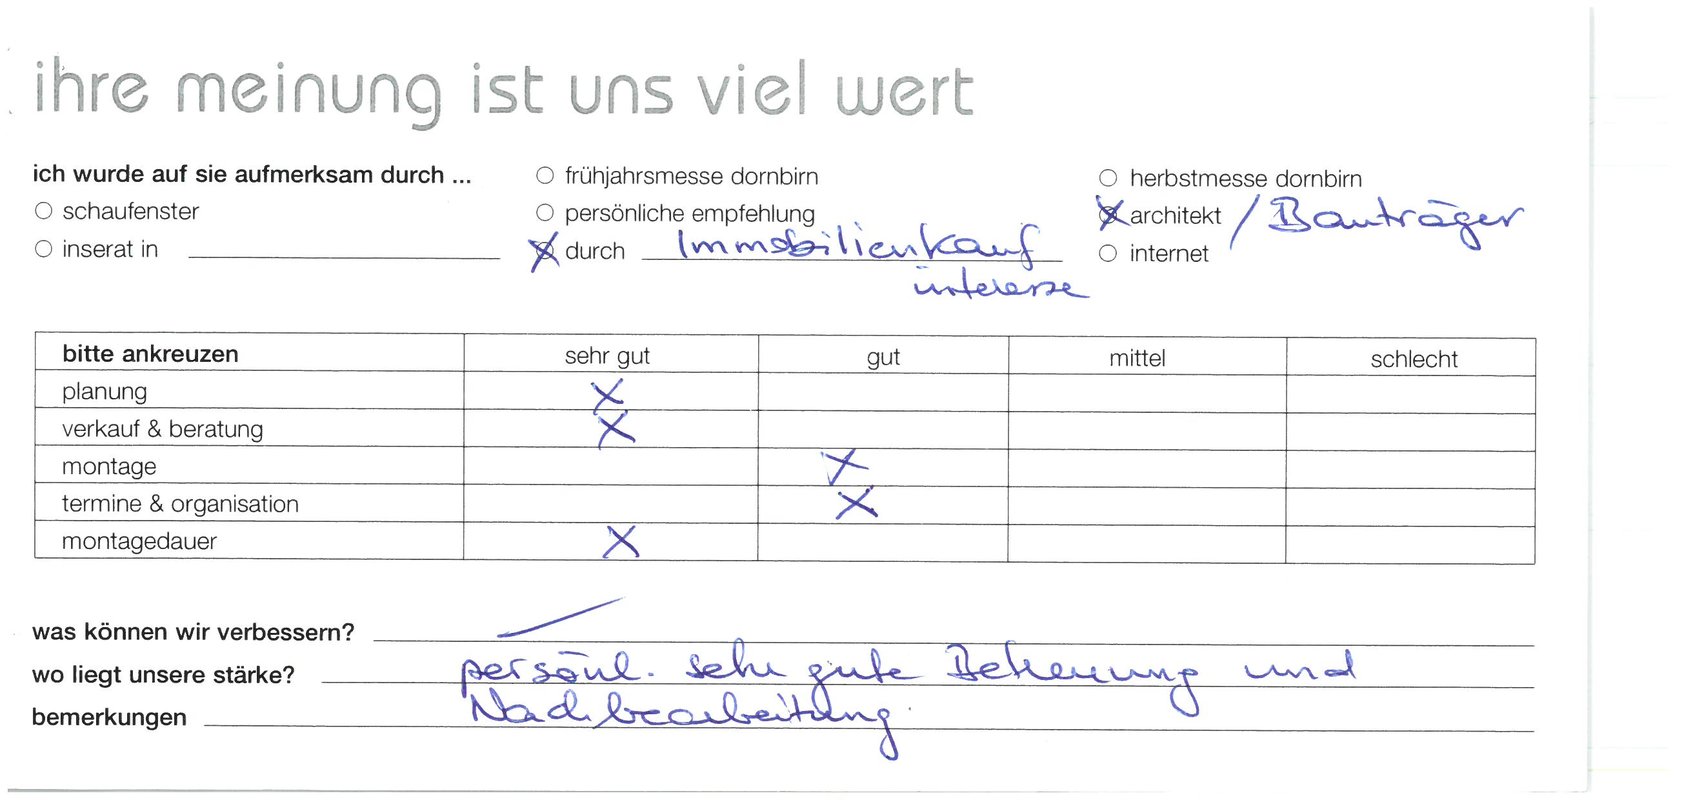 ihre meinung ist uns viel wert
ich wurde auf sie aufmerksam durch ...
○ frühjahrsmesse dornbirn
○ herbstmesse dornbirn
○ schaufenster
○ persönliche empfehlung
architekt / Bauträger
○ inserat in
durch Immobilienkauf
interesse
○ internet
bitte ankreuzen sehr gut gut mittel schlecht
planung X
verkauf & beratung X
montage X
termine & organisation X
montagedauer X
was können wir verbessern?
wo liegt unsere stärke? persönl. sehr gute Betreuung und
bemerkungen Nachbearbeitung